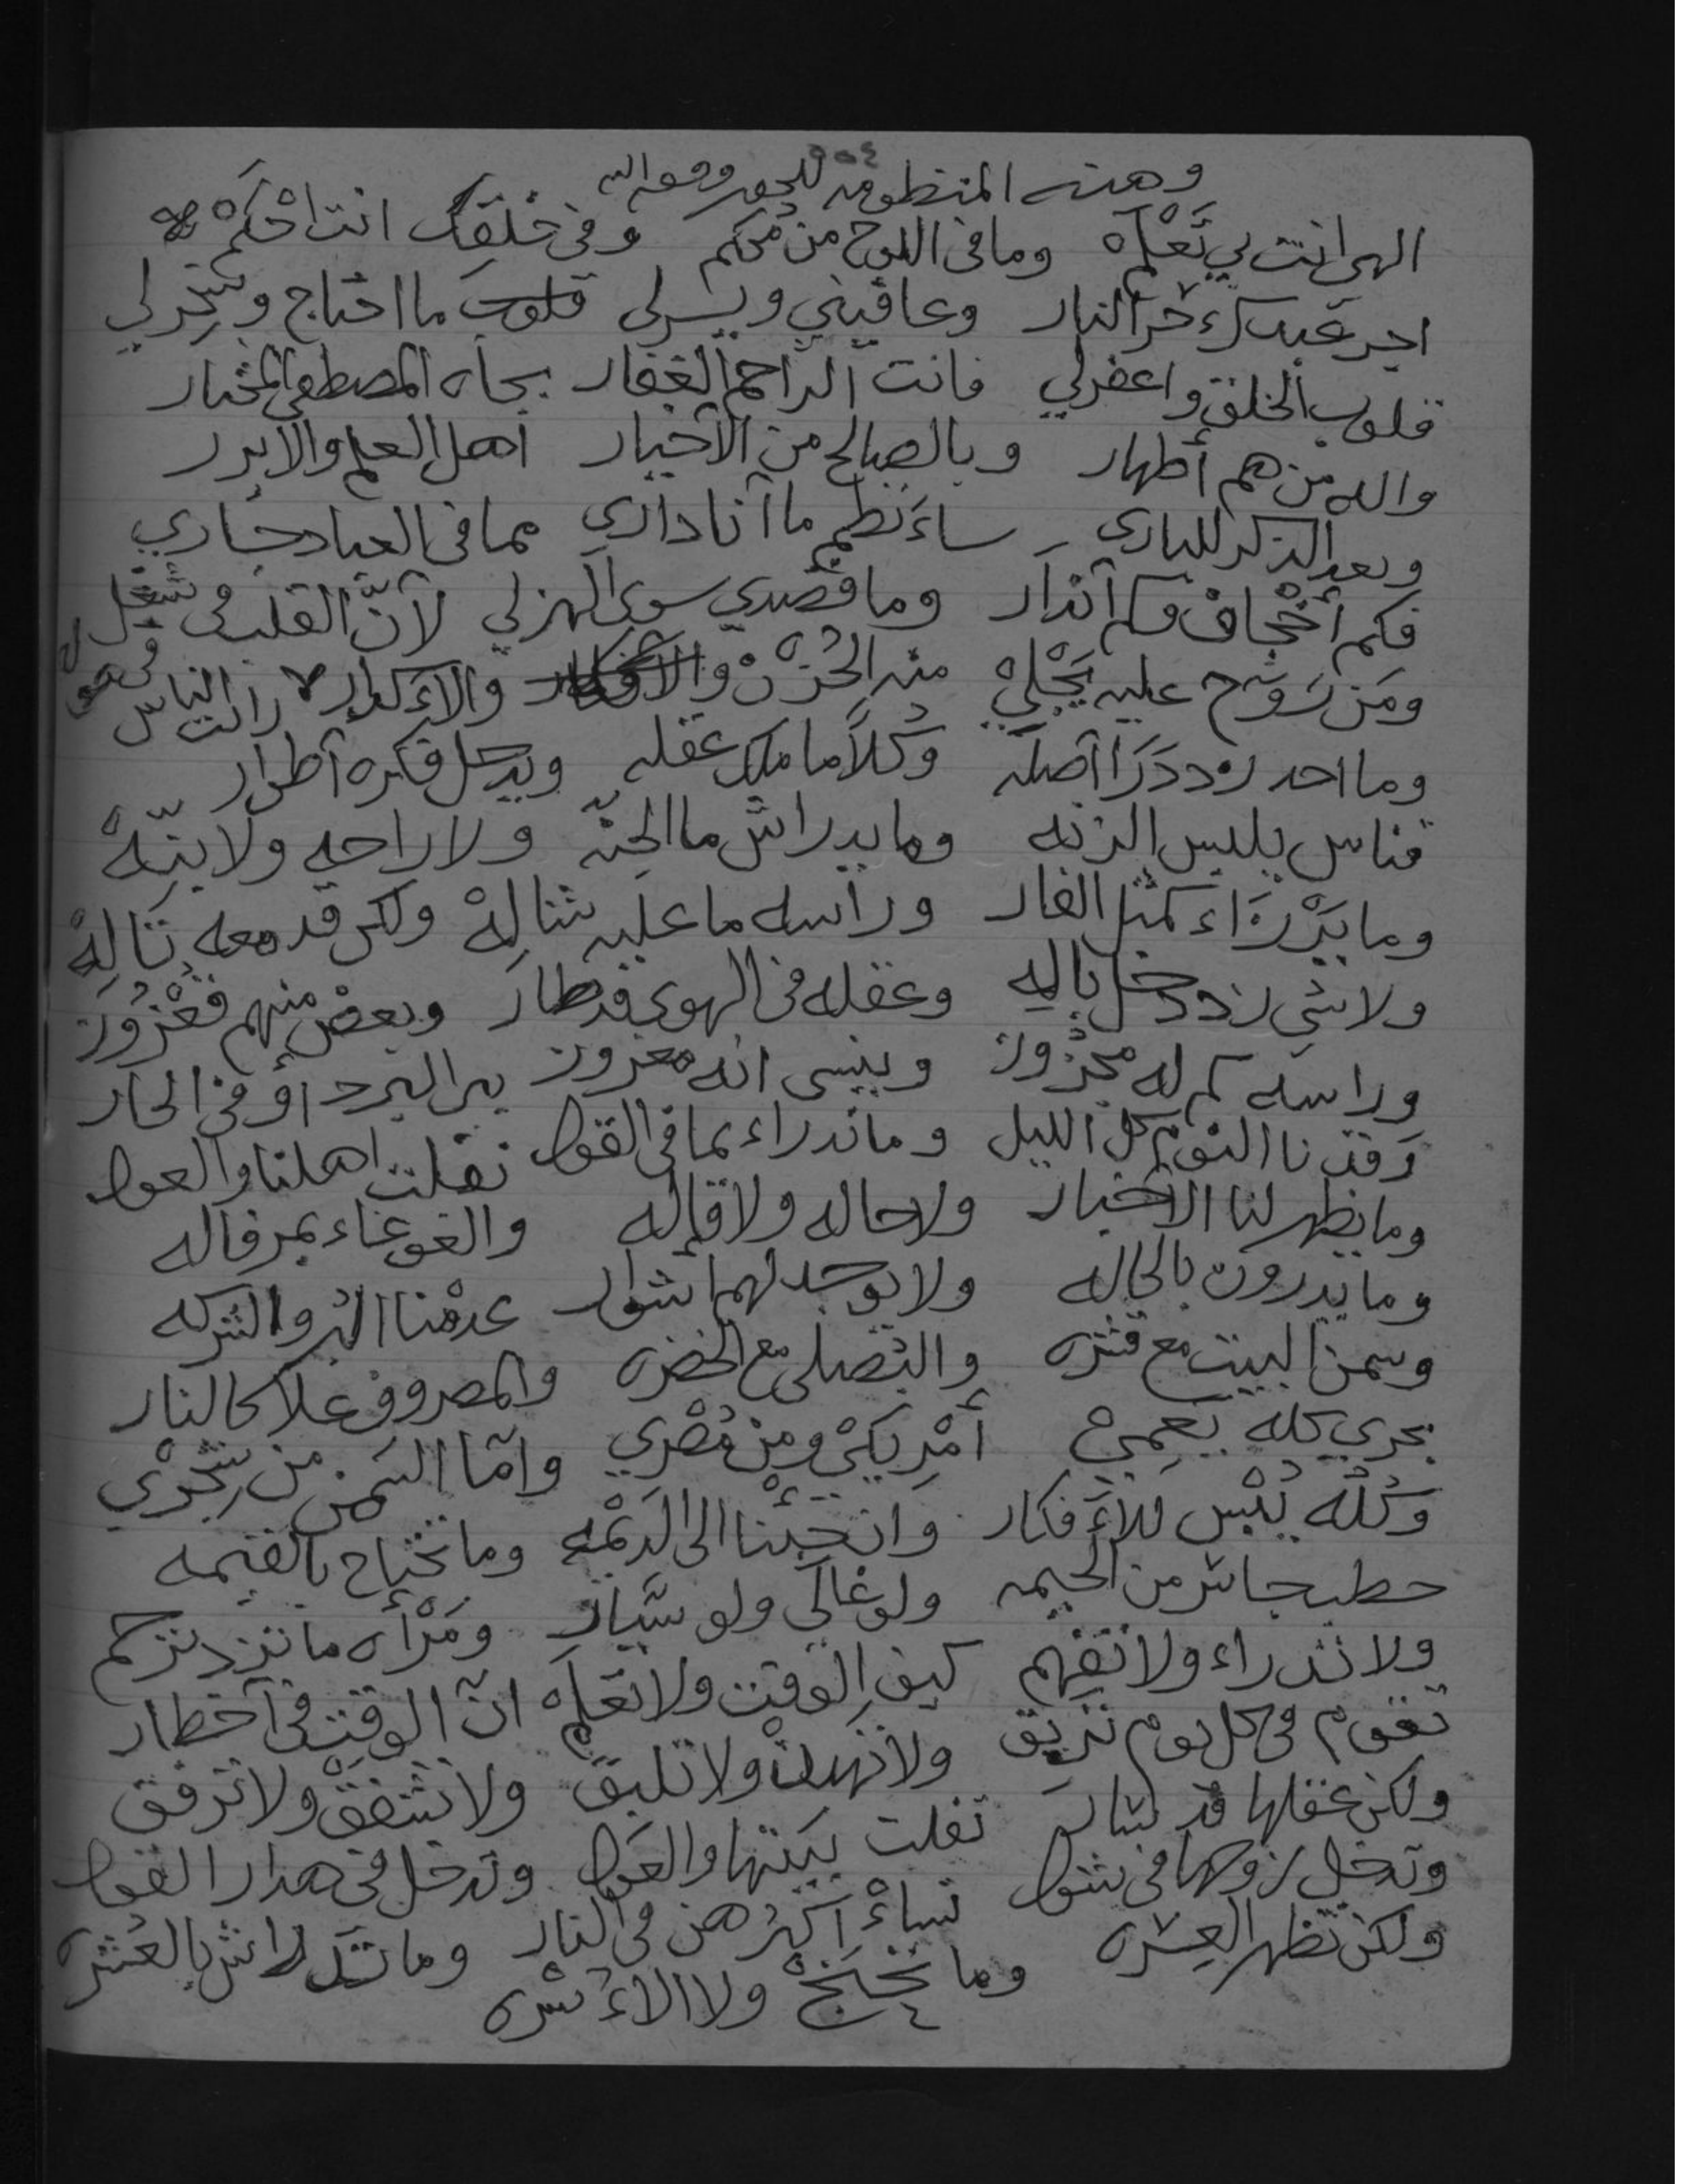 ٤٥٥
وهذه المنظومه للحقير وفقه الله
الهي انت بي تَعْلَمْ وما في اللوح من مُحكم وفي خَلْقِكْ انت احْكَمْ
اجر عبدك حَر النار وعافيني ويسرلي قلوب ما احتاج وسَخِّر لي
قلوب الخلق واغفرلي فانت الراحم الغفار بجاه المصطفى المختار
واله من هم أطهار وبالصالح من الأخيار أهل العلم والابرر
وبعد الذكر للباري ساءَنظم ما آنا داري مما في العباد جاري
فكم أحْجاف وكم آنْذَار وما قصدي سوى الهزلي لآنّ القلب في شغل
ومَن رَوّح عليه يَجْلِيْ منه الحُزْنْ والاءَكدار رات الناس في
وما احد زد دَرَا اصلَه وكُلاً ما ملك عقله ويدحل فكره آطرار
فناس يلبس الزنه وما يدراش ما الجنّه ولا راحه ولا بِنّهْ
وما يَدْرَاء كمثل الفار وراسه ما عليه شَالِهْ ولكن قد معه تَالِهْ
ولا شي زد دخل باله وعقله في الهوى قد طار وبعضْ منهم
وراسه كم له مَحْزُوق وينسى انه معزوز بير البرد أو في الحار
وَقَدنا النوْم كل الليل وما ندراء بما في القول نفلت اهلنا والعول
وما يظهر لنا الآخبار ولا حاله ولا قاله والغوغاء بمرفاله
وما يدرون بالحاله ولا يوجد لهم اشوار عدمْنا البُر والشركه
وسمن البيت مع قشره والبَصلي مع الخضره والمصروف غلا كالنار
بحري كله يعمي أمْرِيكيْ ومن مُصْري وامّا السَمن من يِتْجَرْي
وكُلُّه يُبْس للآءَفكار وان جِيْنا الى الدَيْمه وما نحتاج بالقيمه
حطب جاش من الحيمه ولو غالي ولو سيّار ومَرْأه ما تزد ترحم
ولا تدراء ولا تفهم كيف الوقت ولا تعلَمْ انّ الوقت في آخطار
تقوم في كل يوم تريق ولا تهدأْ ولا تليق ولا تشْفقْ ولا ترفق
ولكن عقلها قد سار تفلت بيتها والعول وتدخل في هدار القول
وتدخل زوجها في شول نساءْ اكثرهن في النار وما تَدراش بالعُشره
ولكن تظهر العسره وما ولا الاءُسره